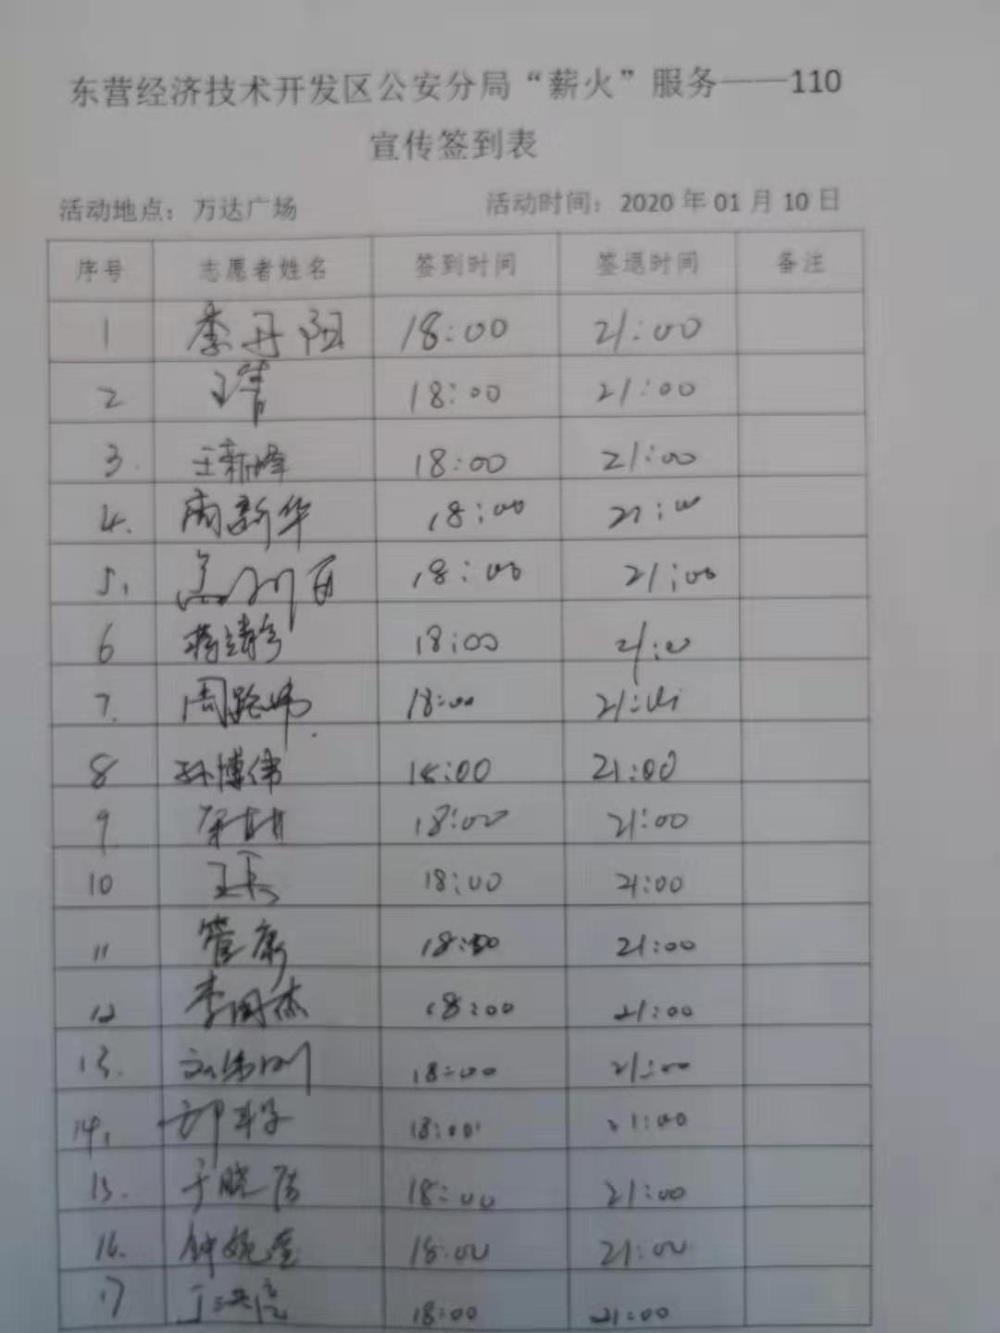 东营经济技术开发区公安分局“薪火”服务——110
宣传签到表
活动地点：万达广场 活动时间：2020 年 01 月 10 日
序号 志愿者姓名 签到时间 签退时间 备注
1 李丹阳 18:00 21:00
2 18:00 21:00
3. 王新峰 18:00 21:00
4. 周新华 18:00 21:00
5. 18:00 21:00
6 18:00 21:00
7. 18:00 21:00
8 孙博伟 18:00 21:00
9 18:00 21:00
10 18:00 21:00
11 管康 18:00 21:00
12 李国杰 18:00 21:00
13. 18:00 21:00
14. 18:00 21:00
15. 于晓 18:00 21:00
16. 钟婉莹 18:00 21:00
17 18:00 21:00